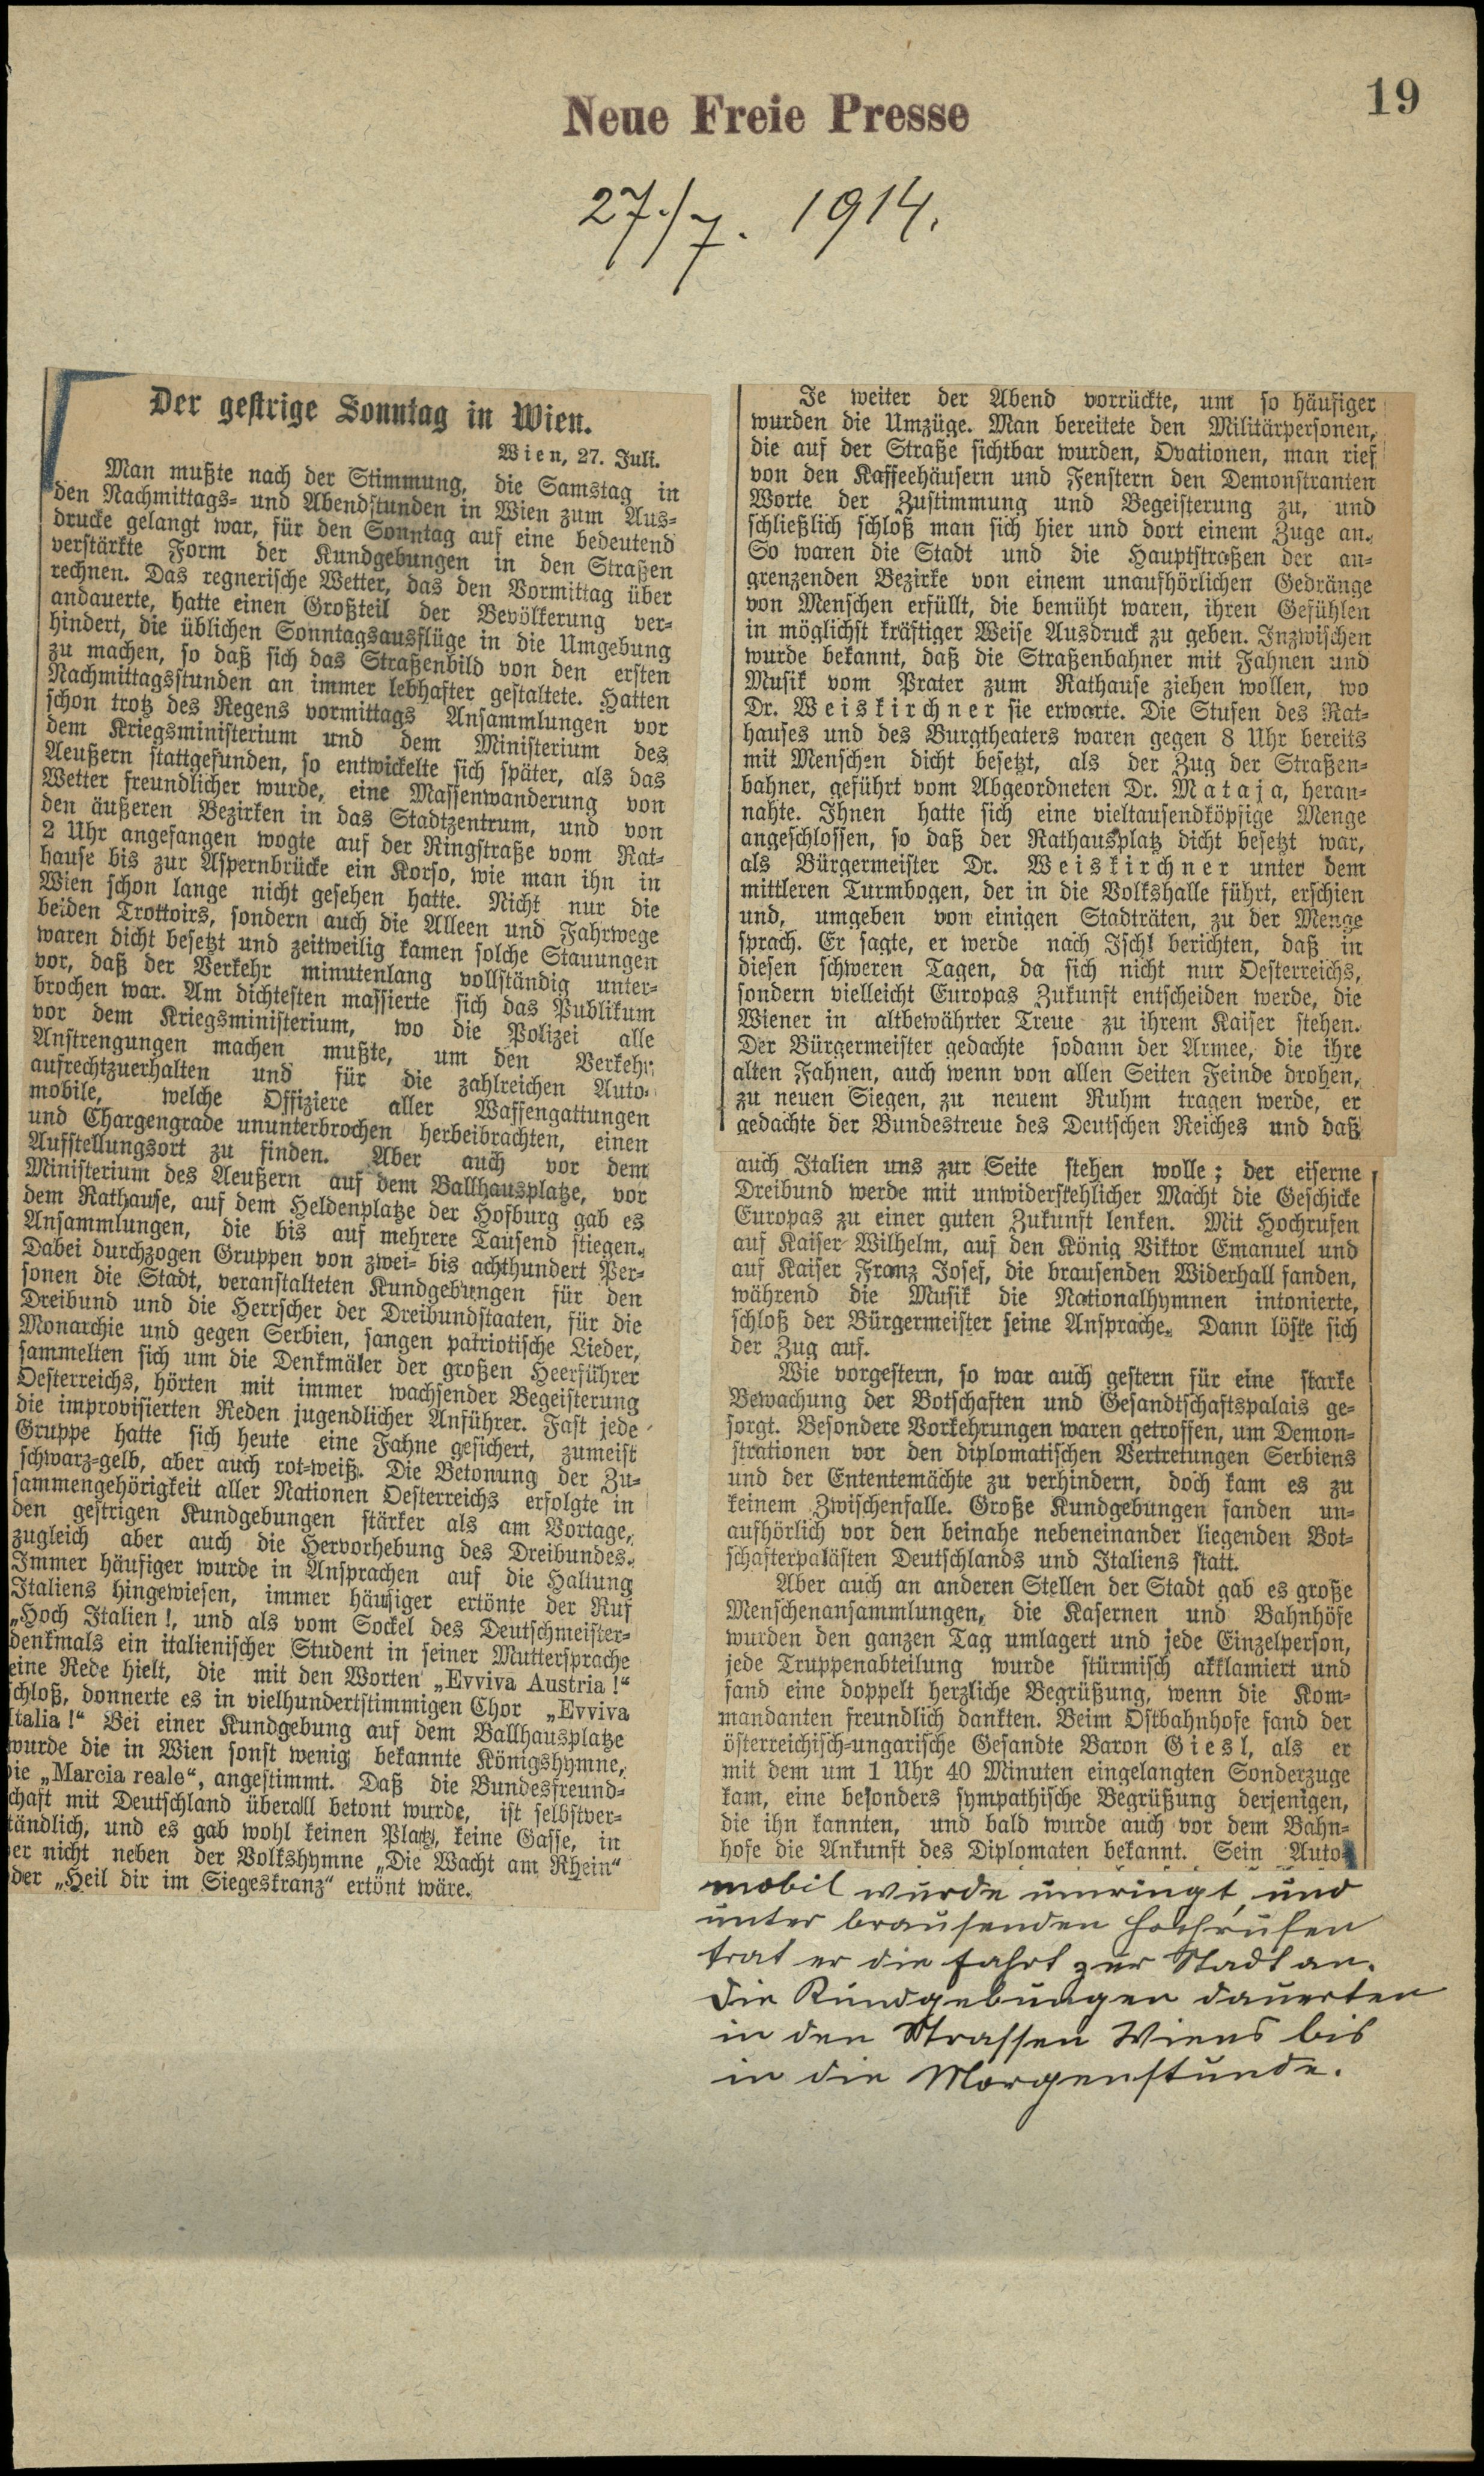 19
Neue Freie Presse
27./7. 1914.
Der gestrige Sonntag in Wien.
Wien, 27. Juli.
Man mußte nach der Stimmung, die Samstag in
den Nachmittags- und Abendstunden in Wien zum Aus-
drucke gelangt war, für den Sonntag auf eine bedeutend
verstärkte Form der Kundgebungen in den Straßen
rechnen. Das regnerische Wetter, das den Vormittag über
andauerte, hatte einen Großteil der Bevölkerung ver-
hindert, die üblichen Sonntagsausflüge in die Umgebung
zu machen, so daß sich das Straßenbild von den ersten
Nachmittagsstunden an immer lebhafter gestaltete. Hatten
schon trotz des Regens vormittags Ansammlungen vor
dem Kriegsministerium und dem Ministerium des
Aeußern stattgefunden, so entwickelte sich später, als das
Wetter freundlicher wurde, eine Massenwanderung von
den äußeren Bezirken in das Stadtzentrum, und von
2 Uhr angefangen wogte auf der Ringstraße vom Rat-
hause bis zur Aspernbrücke ein Korso, wie man ihn in
Wien schon lange nicht gesehen hatte. Nicht nur die
beiden Trottoirs, sondern auch die Alleen und Fahrwege
waren dicht besetzt und zeitweilig kamen solche Stauungen
vor, daß der Verkehr minutenlang vollständig unter-
brochen war. Am dichtesten massierte sich das Publikum
vor dem Kriegsministerium, wo die Polizei alle
Anstrengungen machen mußte, um den Verkehr
aufrechtzuerhalten und für die zahlreichen Auto-
mobile, welche Offiziere aller Waffengattungen
und Chargengrade ununterbrochen herbeibrachten, einen
Aufstellungsort zu finden. Aber auch vor dem
Ministerium des Aeußern auf dem Ballhausplatze, vor
dem Rathause, auf dem Heldenplatze der Hofburg gab es
Ansammlungen, die bis auf mehrere Tausend stiegen.
Dabei durchzogen Gruppen von zwei- bis achthundert Per-
sonen die Stadt, veranstalteten Kundgebungen für den
Dreibund und die Herrscher der Dreibundstaaten, für die
Monarchie und gegen Serbien, sangen patriotische Lieder,
sammelten sich um die Denkmäler der großen Heerführer
Oesterreichs, hörten mit immer wachsender Begeisterung
die improvisierten Reden jugendlicher Anführer. Fast jede
Gruppe hatte sich heute eine Fahne gesichert, zumeist
schwarz-gelb, aber auch rot-weiß. Die Betonung der Zu-
sammengehörigkeit aller Nationen Oesterreichs erfolgte in
den gestrigen Kundgebungen stärker als am Vortage,
zugleich aber auch die Hervorhebung des Dreibundes.
Immer häufiger wurde in Ansprachen auf die Haltung
Italiens hingewiesen, immer häufiger ertönte der Ruf
„Hoch Italien!, und als vom Sockel des Deutschmeister-
denkmals ein italienischer Student in seiner Muttersprache
eine Rede hielt, die mit den Worten „Evviva Austria!“
schloß, donnerte es in vielhundertstimmigen Chor „Evviva
Italia!“ Bei einer Kundgebung auf dem Ballhausplatze
wurde die in Wien sonst wenig bekannte Königshymne,
die „Marcia reale“, angestimmt. Daß die Bundesfreund-
chaft mit Deutschland überall betont wurde, ist selbstver-
tändlich, und es gab wohl keinen Platz, keine Gasse, in
er nicht neben der Volkshymne „Die Wacht am Rhein“
der „Heil dir im Siegeskranz“ ertönt wäre.
Je weiter der Abend vorrückte, um so häufiger
wurden die Umzüge. Man bereitete den Militärpersonen,
die auf der Straße sichtbar wurden, Ovationen, man rief
von den Kaffeehäusern und Fenstern den Demonstranten
Worte der Zustimmung und Begeisterung zu, und
schließlich schloß man sich hier und dort einem Zuge an.
So waren die Stadt und die Hauptstraßen der an-
grenzenden Bezirke von einem unaufhörlichen Gedränge
von Menschen erfüllt, die bemüht waren, ihren Gefühlen
in möglichst kräftiger Weise Ausdruck zu geben. Inzwischen
wurde bekannt, daß die Straßenbahner mit Fahnen und
Musik vom Prater zum Rathause ziehen wollen, wo
Dr. Weiskirchner sie erwarte. Die Stufen des Rat-
hauses und des Burgtheaters waren gegen 8 Uhr bereits
mit Menschen dicht besetzt, als der Zug der Straßen-
bahner, geführt vom Abgeordneten Dr. Mataja, heran-
nahte. Ihnen hatte sich eine vieltausendköpfige Menge
angeschlossen, so daß der Rathausplatz dicht besetzt war,
als Bürgermeister Dr. Weiskirchner unter dem
mittleren Turmbogen, der in die Volkshalle führt, erschien
und, umgeben von einigen Stadträten, zu der Menge
sprach. Er sagte, er werde nach Ischl berichten, daß in
diesen schweren Tagen, da sich nicht nur Oesterreichs,
sondern vielleicht Europas Zukunft entscheiden werde, die
Wiener in altbewährter Treue zu ihrem Kaiser stehen.
Der Bürgermeister gedachte sodann der Armee, die ihre
alten Fahnen, auch wenn von allen Seiten Feinde drohen,
zu neuen Siegen, zu neuem Ruhm tragen werde, er
gedachte der Bundestreue des Deutschen Reiches und daß
auch Italien uns zur Seite stehen wolle; der eiserne
Dreibund werde mit unwiderstehlicher Macht die Geschicke
Europas zu einer guten Zukunft lenken. Mit Hochrufen
auf Kaiser Wilhelm, auf den König Viktor Emanuel und
auf Kaiser Franz Josef, die brausenden Widerhall fanden,
während die Musik die Nationalhymnen intonierte,
schloß der Bürgermeister seine Ansprache. Dann löste sich
der Zug auf.
Wie vorgestern, so war auch gestern für eine starke
Bewachung der Botschaften und Gesandtschaftspalais ge-
sorgt. Besondere Vorkehrungen waren getroffen, um Demon-
strationen vor den diplomatischen Vertretungen Serbiens
und der Ententemächte zu verhindern, doch kam es zu
keinem Zwischenfalle. Große Kundgebungen fanden un-
aufhörlich vor den beinahe nebeneinander liegenden Bot-
schafterpalästen Deutschlands und Italiens statt.
Aber auch an anderen Stellen der Stadt gab es große
Menschenansammlungen, die Kasernen und Bahnhöfe
wurden den ganzen Tag umlagert und jede Einzelperson,
jede Truppenabteilung wurde stürmisch akklamiert und
fand eine doppelt herzliche Begrüßung, wenn die Kom-
mandanten freundlich dankten. Beim Ostbahnhofe fand der
österreichisch-ungarische Gesandte Baron Giesl, als er
mit dem um 1 Uhr 40 Minuten eingelangten Sonderzuge
kam, eine besonders sympathische Begrüßung derjenigen,
die ihn kannten, und bald wurde auch vor dem Bahn-
hofe die Ankunft des Diplomaten bekannt. Sein Auto-
mobil wurde umringt, und
unter brausenden Hochrufen
trat er die Fahrt zur Stadt an.
Die Kundgebungen dauerten
in den Strassen Wiens bis
in die Morgenstunde.